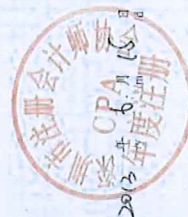 深圳市注册会计师协会
CPA
年度注册
2013年6月15日